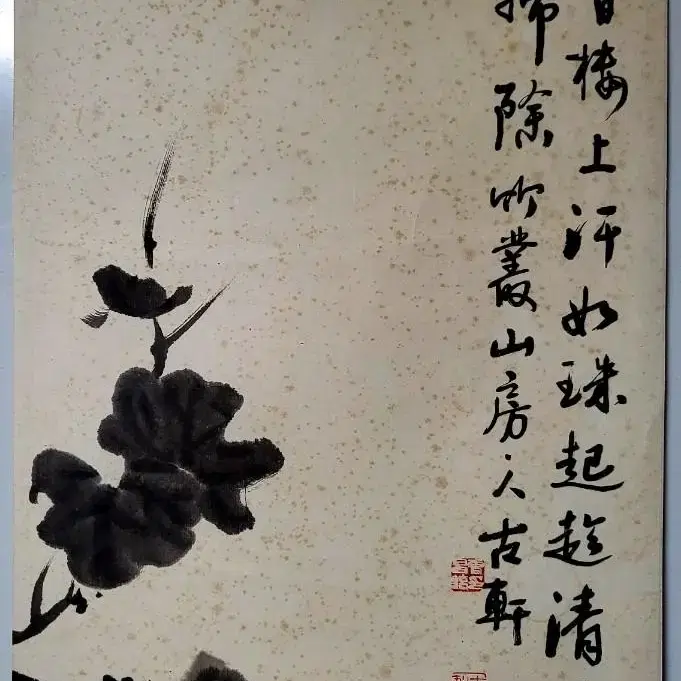 樓上汗如珠起趁清
掃除竹叢山房人古軒